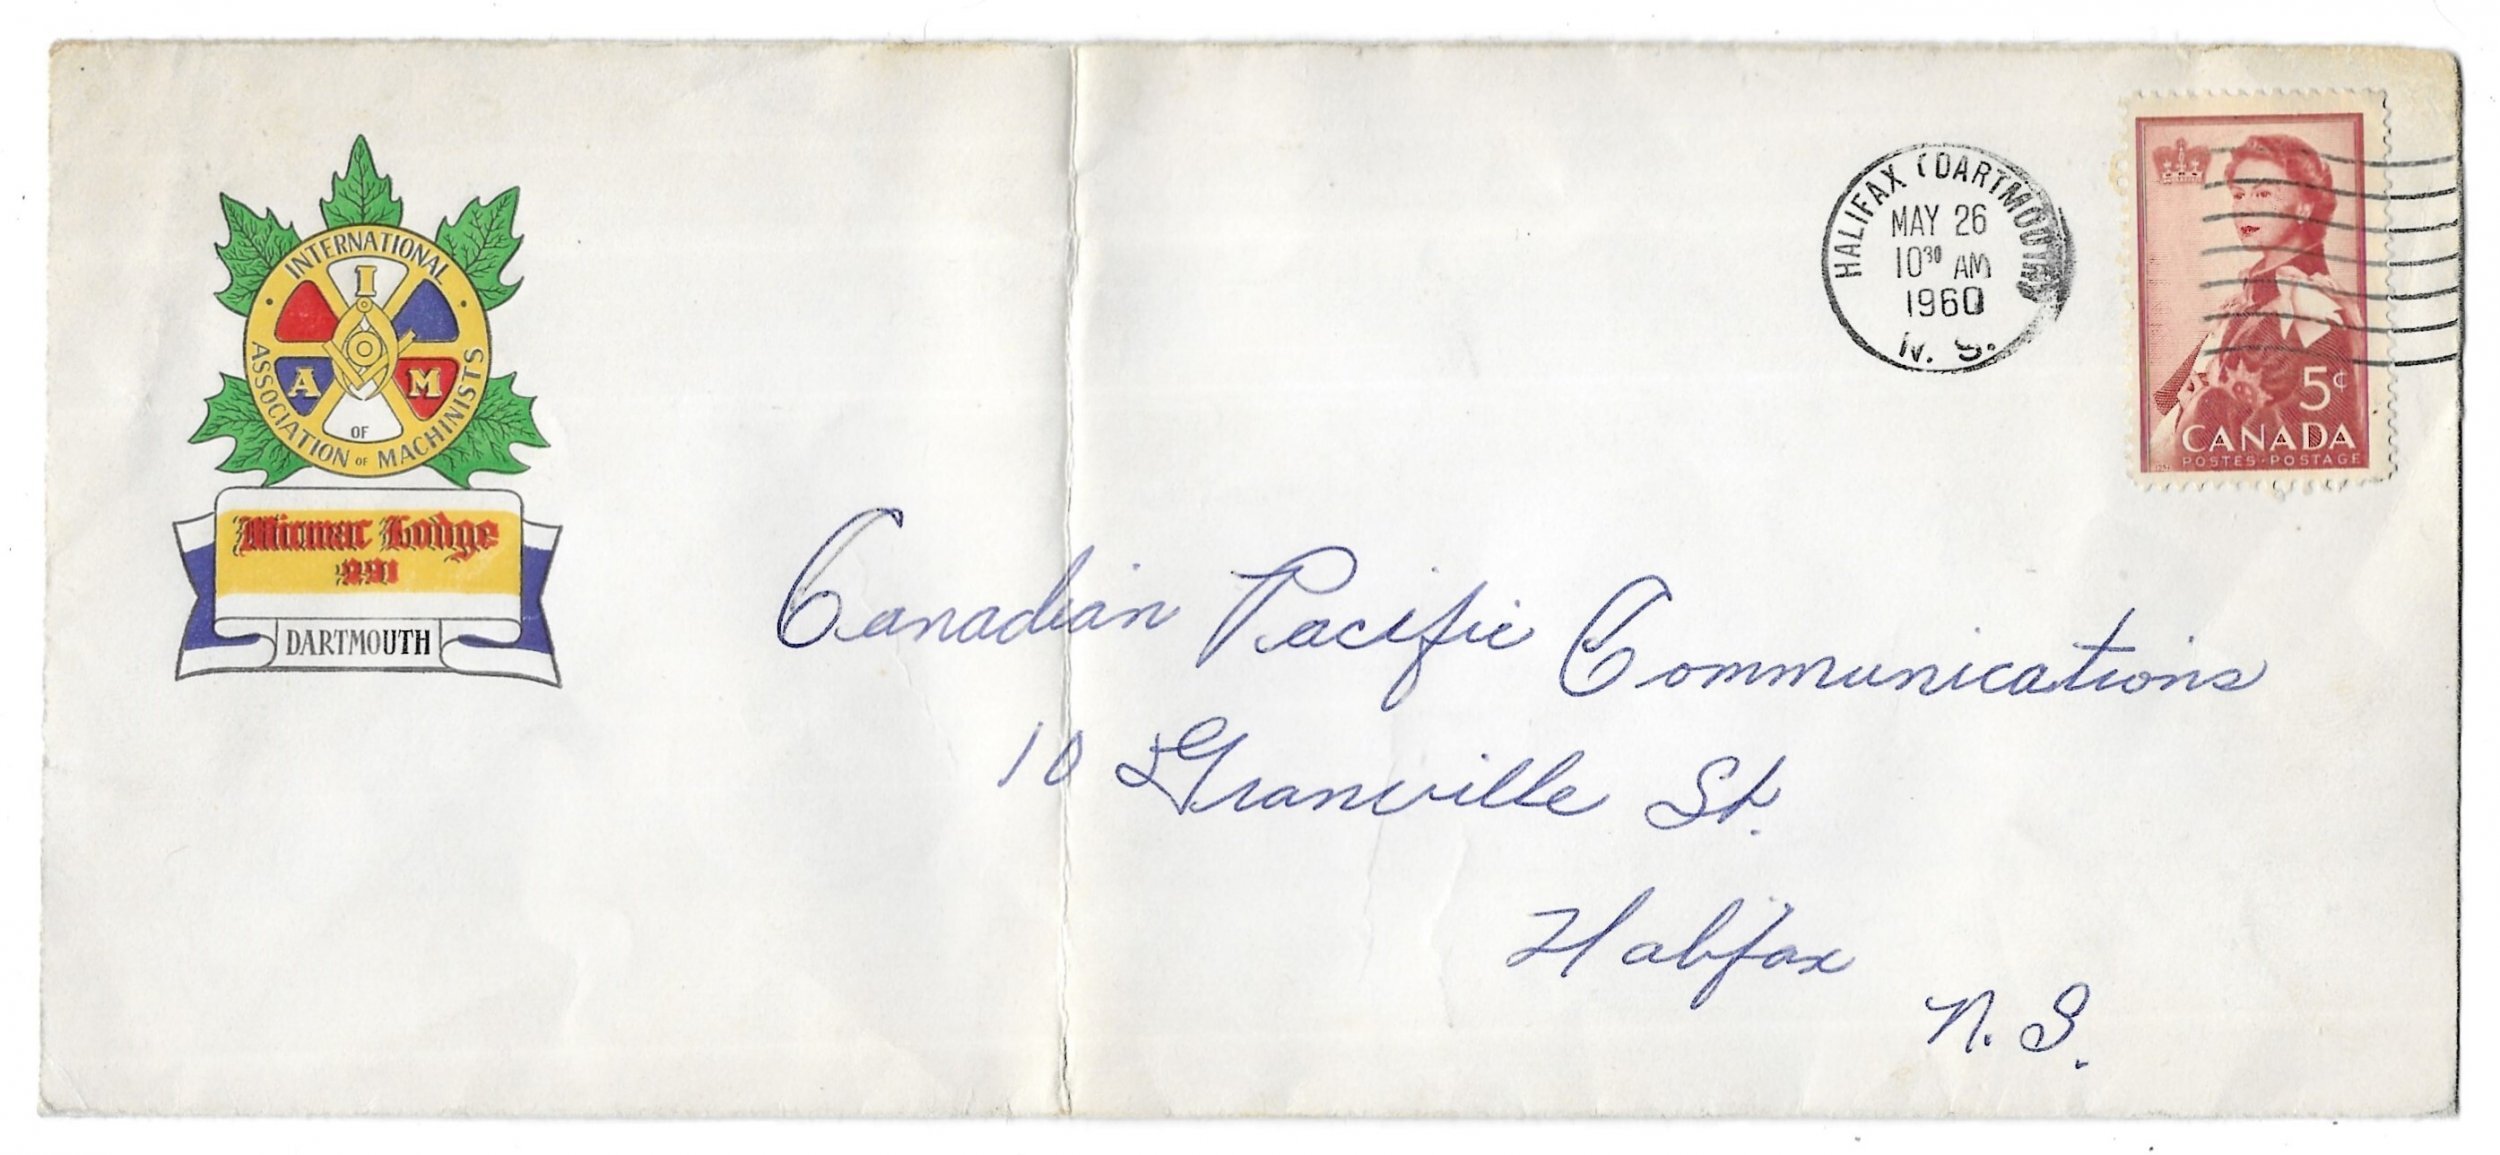 INTERNATIONAL
ASSOCIATION OF MACHINISTS
I
A M
OF
Micmac Lodge
DARTMOUTH
HALIFAX (DARTMOUTH)
MAY 26
10³⁰ AM
1960
N. S.
5¢
CANADA
POSTES·POSTAGE
Canadian Pacific Communications
10 Granville St.
Halifax
N. S.